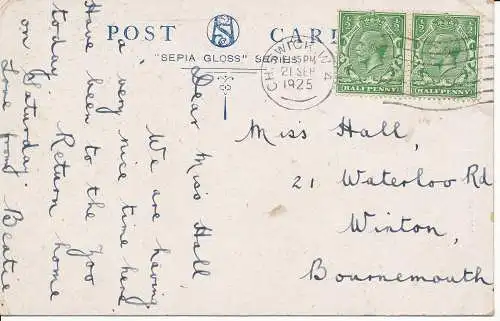 POST CARD
"SEPIA GLOSS" SERIES
CHISWICK. W.4
PM
21 SEP
1925
HALFPENNY
HALFPENNY
Dear Miss Hall
We are having
a very nice time here.
Have been to the Zoo
today. Return home
on Saturday.
Love from Beatie
Miss Hall,
21 Waterloo Rd
Winton,
Bournemouth